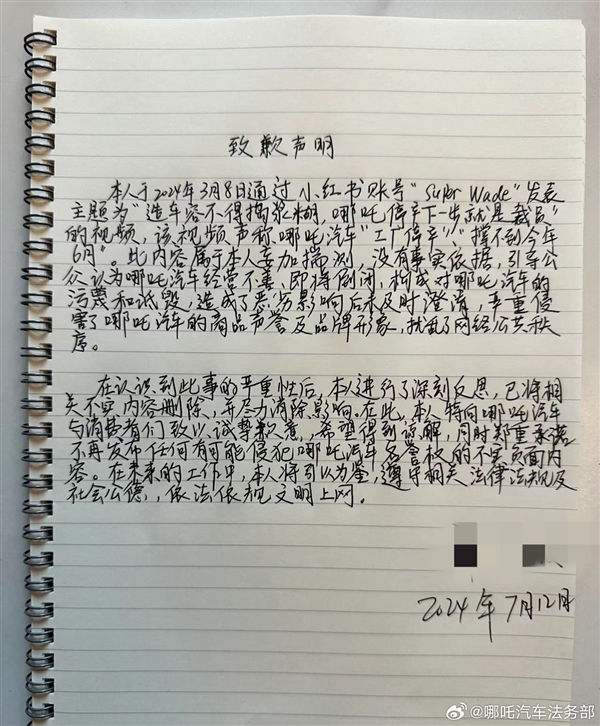 致歉声明
本人于2024年3月8日通过小红书账号"Super Wade"发表
主题为"造车容不得捣浆糊，哪吒停产下一步就是裁员"
的视频，该视频声称哪吒汽车"工厂停产"、"撑不到今年
6月"。此内容属于本人妄加揣测，没有事实依据，引导公
众认为哪吒汽车经营不善，即将倒闭，构成对哪吒汽车的
污蔑和诋毁，造成了恶劣影响后未及时澄清，严重侵
害了哪吒汽车的商品声誉及品牌形象，扰乱了网络公共秩
序。
在认识到此事的严重性后，本人进行了深刻反思，已将相
关不实内容删除，并尽力消除影响。在此，本人特向哪吒汽车
与消费者们致以诚挚歉意，希望得到谅解，同时郑重承诺
不再发布任何有可能侵犯哪吒汽车名誉权的不实负面内
容。在未来的工作中，本人将引以为鉴，遵守相关法律法规及
社会公德，依法依规文明上网。
2024年7月12日
@哪吒汽车法务部